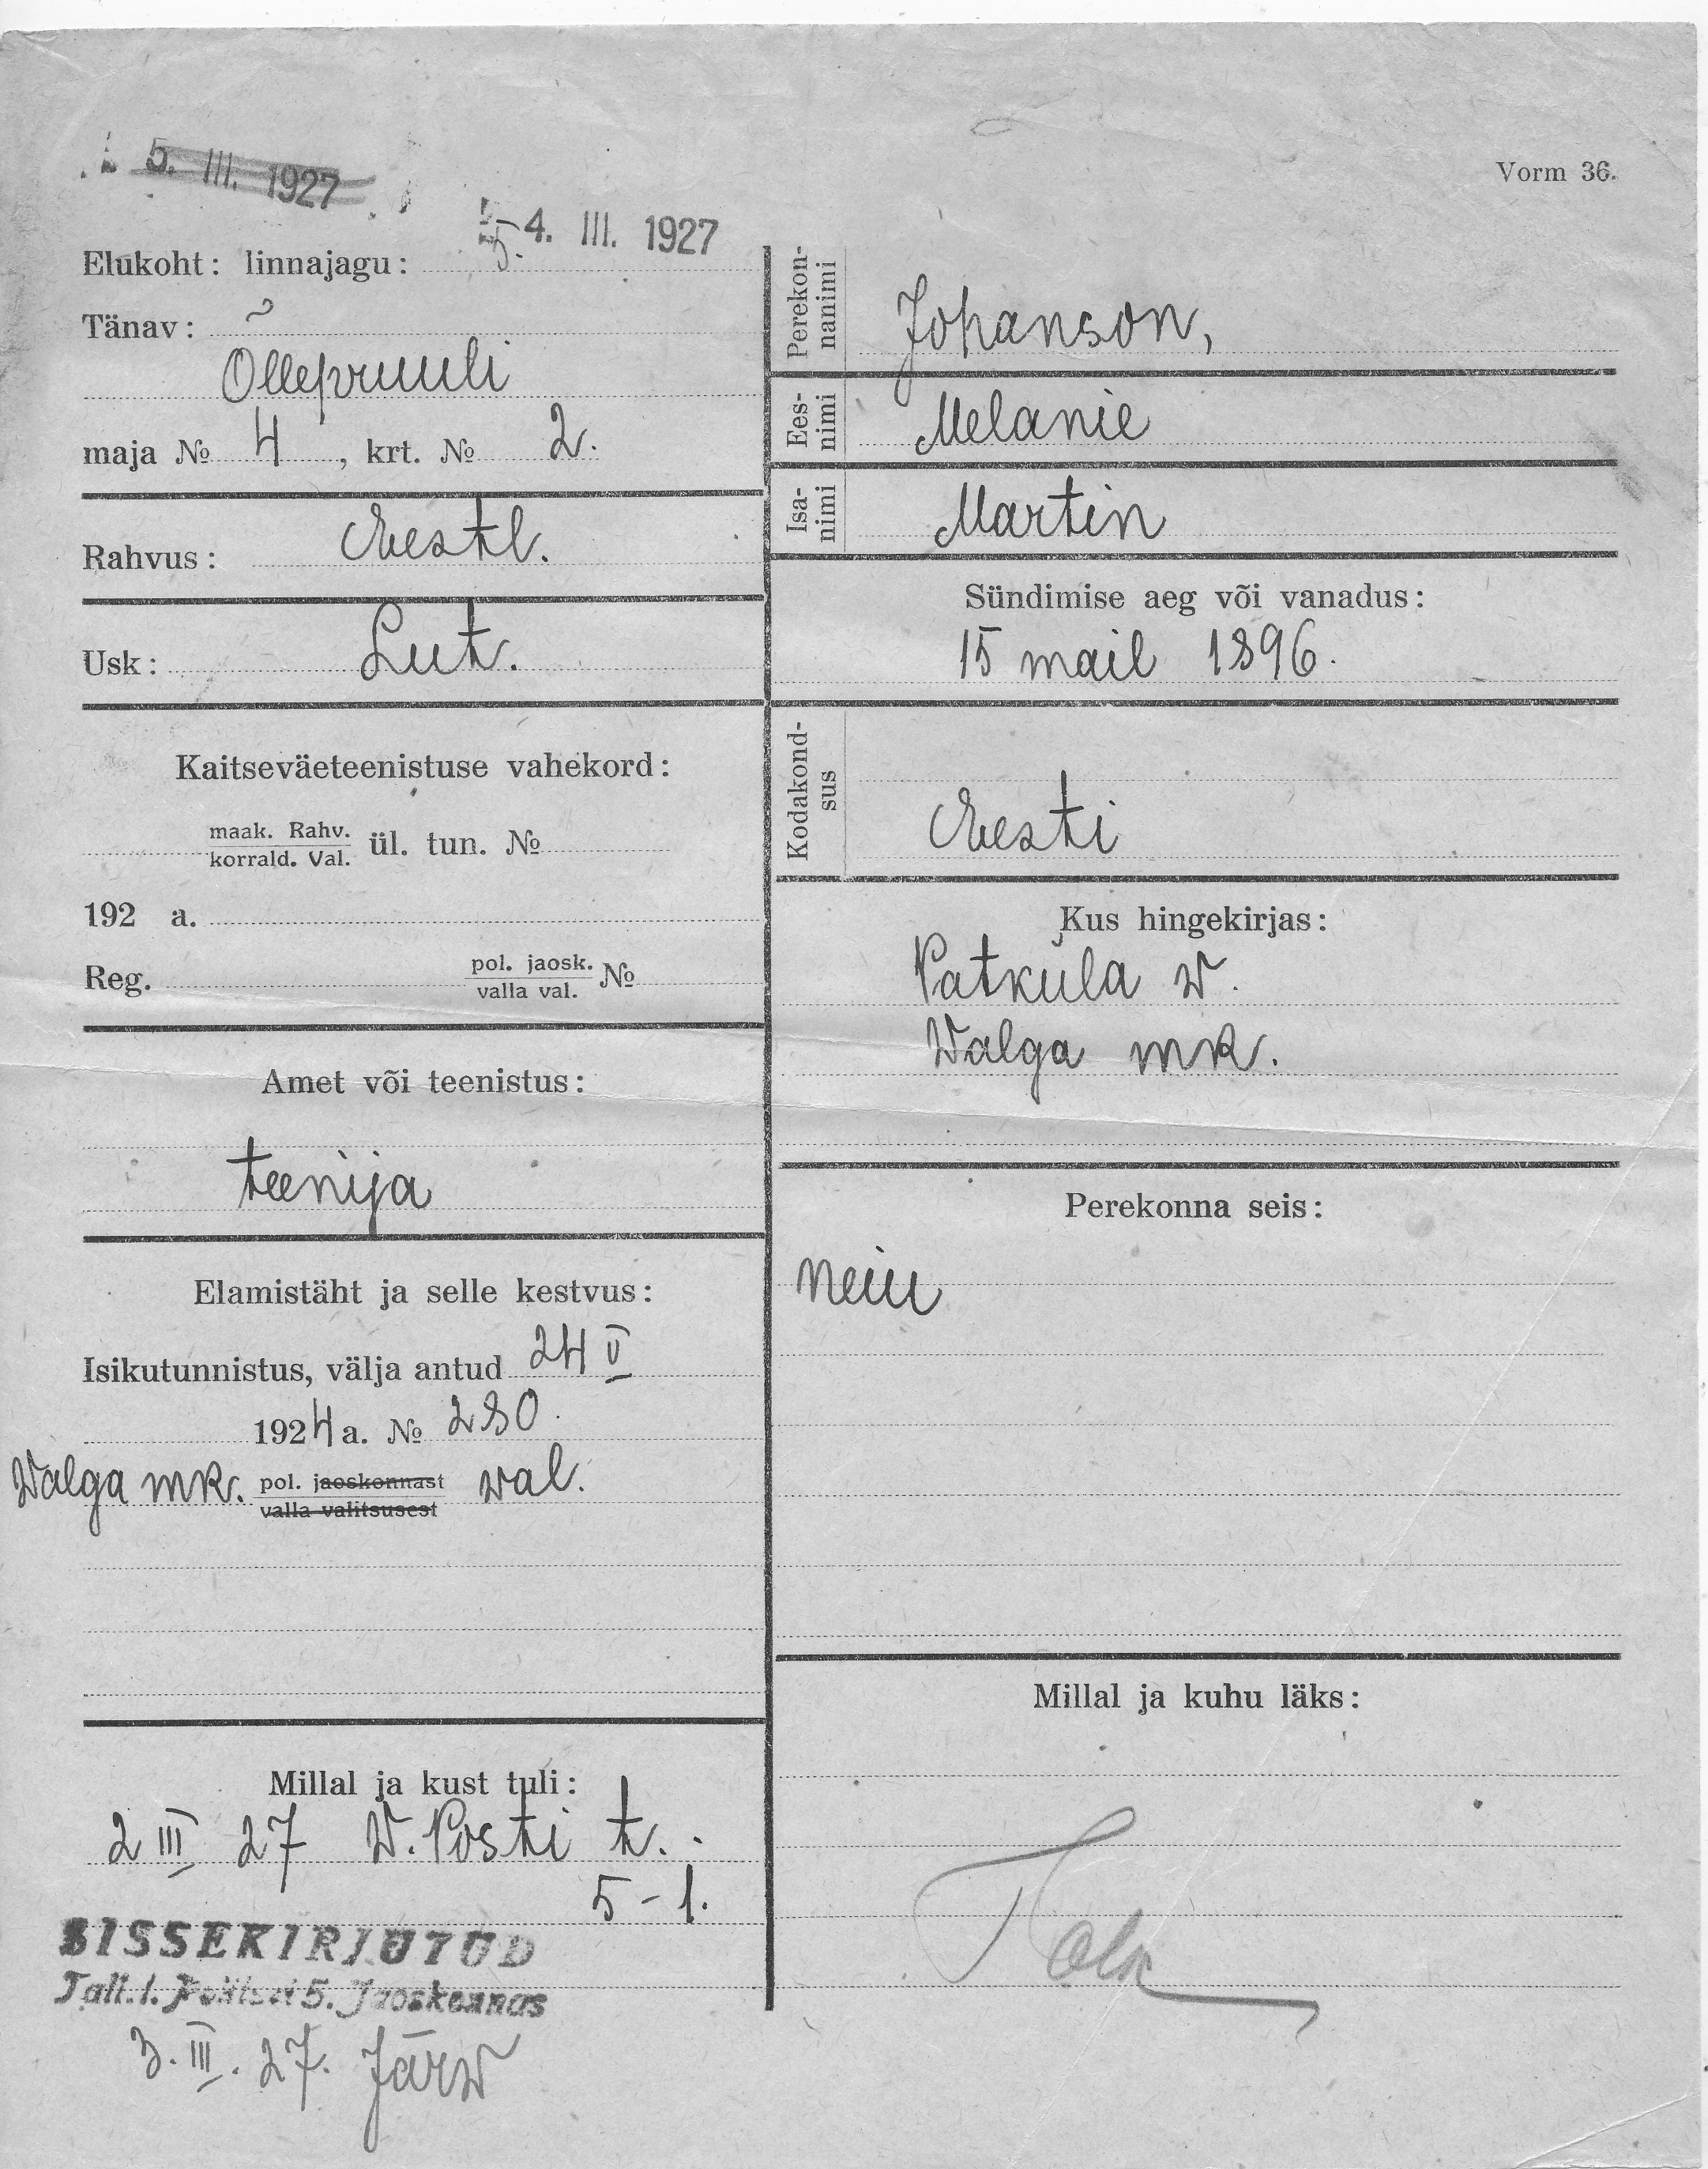 5. III. 1927
4. III. 1927
Vorm 36.
Elukoht: linnajagu: 5.
Tänav:
Õllepruuli
maja № 4, krt. № 2.
Rahvus: Eestl.
Usk: Lut.
Kaitseväeteenistuse vahekord:
maak. Rahv.
korrald. Val. ül. tun. №
192 a.
Reg. pol. jaosk.
valla val. №
Amet või teenistus:
teenija
Elamistäht ja selle kestvus:
Isikutunnistus, välja antud 24 V
1924 a. № 280.
Walga mk. pol. jaoskonnast wal.
valla valitsusest
Millal ja kust tuli:
2 III 27 W. Posti t.
5-1.
SISSEKIRJUTUD
Tall. l. Politsei 5. Jaoskonnas
3. III. 27. Järw
Perekon-
nanimi
Johanson,
Ees-
nimi
Melanie
Isa-
nimi
Martin
Sündimise aeg või vanadus:
15 mail 1896.
Kodakond-
sus
Eesti
Kus hingekirjas:
Patküla w.
Walga mk.
Perekonna seis:
neiu
Millal ja kuhu läks: